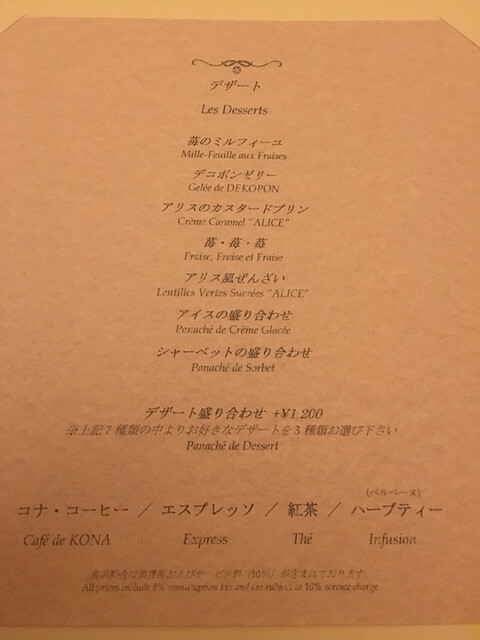 デザート
Les Desserts
苺のミルフィーユ
Mille-Feuille aux Fraises
デコポンゼリー
Gelée de DEKOPON
アリスのカスタードプリン
Crème Caramel "ALICE"
苺・苺・苺
Fraise, Fraise et Fraise
アリス風ぜんざい
Lentilles Vertes Sucrées "ALICE"
アイスの盛り合わせ
Panaché de Crème Glacée
シャーベットの盛り合わせ
Panaché de Sorbet
デザート盛り合わせ +¥1,200
※上記7種類の中よりお好きなデザートを3種類お選び下さい
Panaché de Dessert
(ベルベーヌ)
コナ・コーヒー / エスプレッソ / 紅茶 / ハーブティー
Café de KONA Express Thé Infusion
表示料金は消費税およびサービス料 (10%) が含まれております
All prices include 8% consumption tax and are subject to 10% service charge